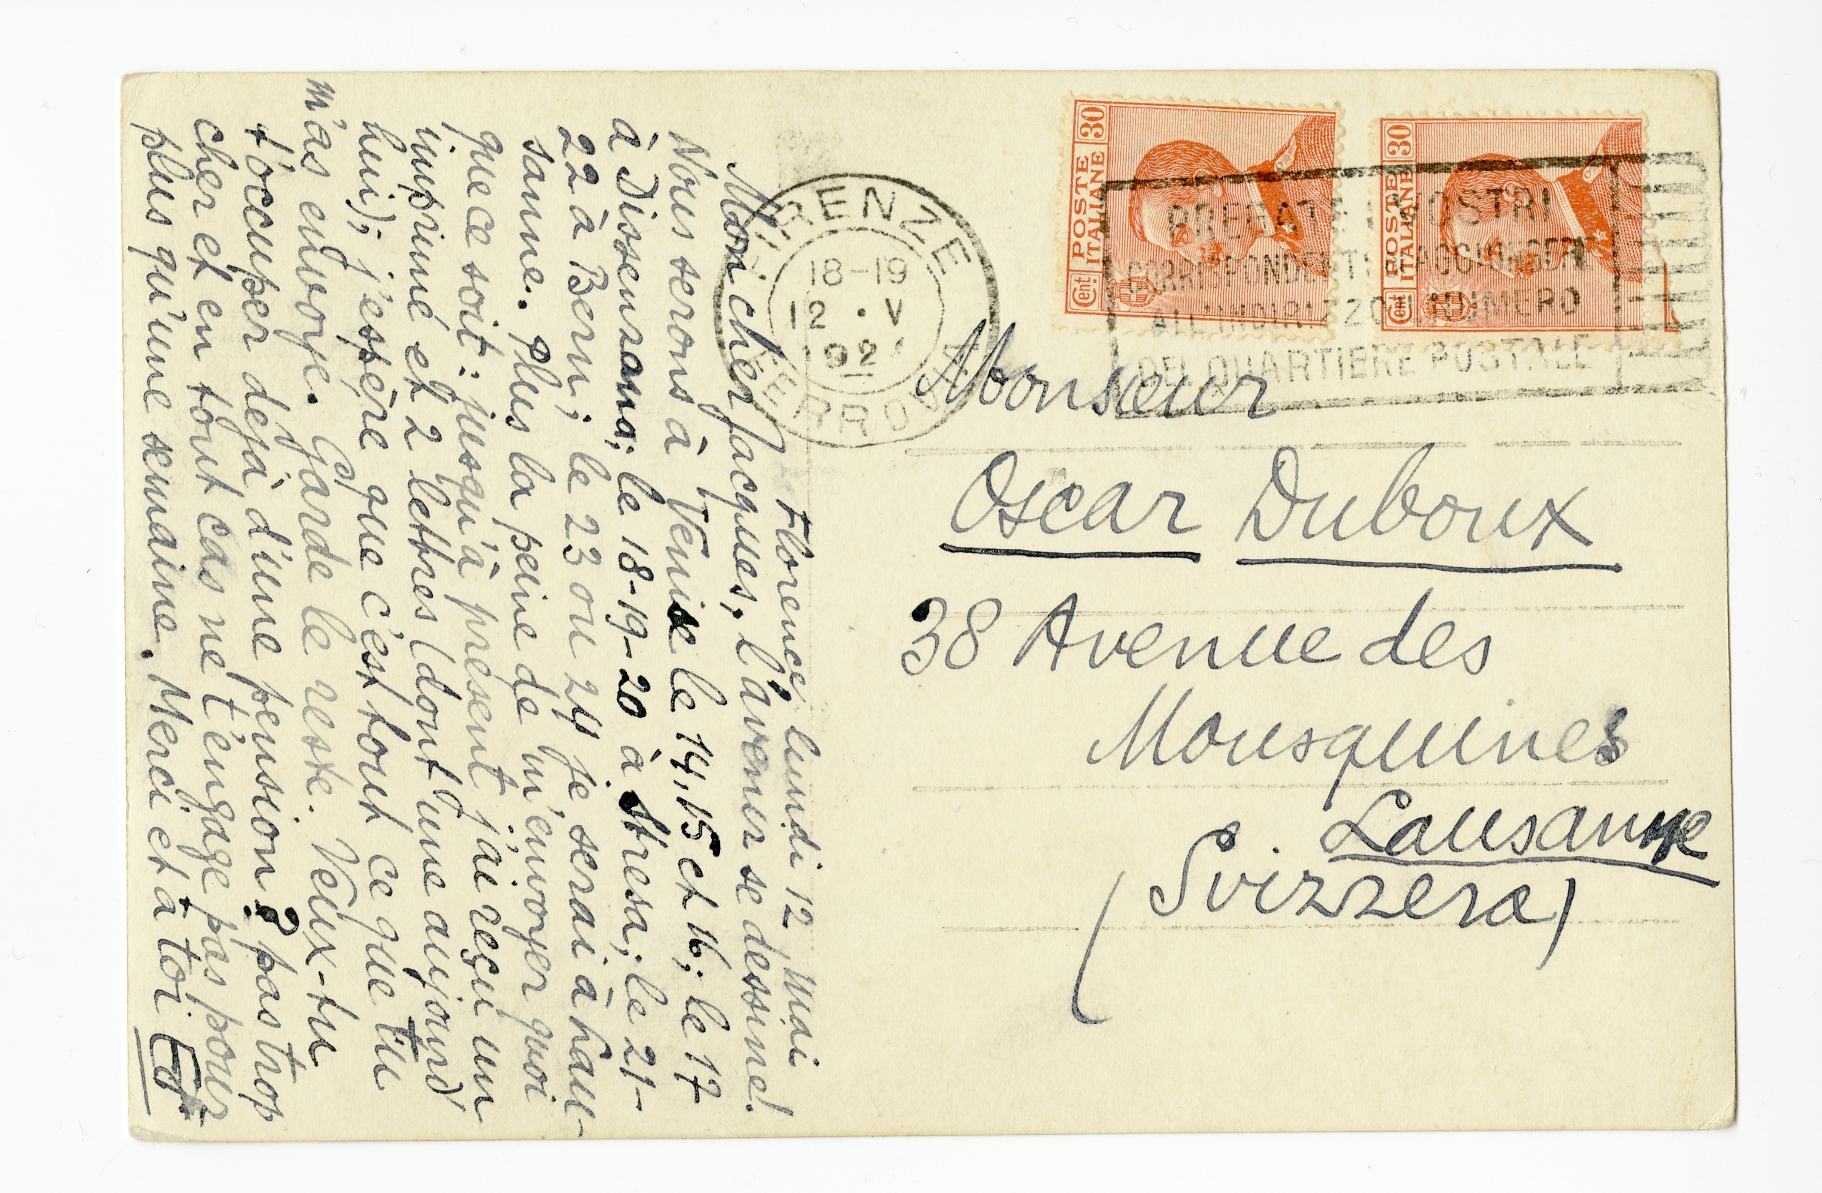 Florence, lundi 12 Mai
Mon cher Jacques, l'avenir se dessine!
Nous serons à Venise le 14, 15 et 16; le 17
à Dissensana; le 18-19-20 à Stresa; le 21-
22 à Bern; le 23 ou 24 je serai à Lau-
sanne. Plus la peine de m'envoyer quoi
que ce soit: jusqu'à présent j'ai reçu un
imprimé et 2 lettres (dont l'une aujourd'
hui); j'espère que c'est tout ce que tu
m'as envoyé. Garde le reste. Veux-tu
t'occuper déjà d'une pension? pas trop
cher et en tout cas ne t'engage pas pour
plus qu'une semaine. Merci et à toi
FIRENZE
18-19
12 · V
FERROVIA
POSTE ITALIANE
Cent 30
POSTE ITALIANE
Cent 30
PREGATE I VOSTRI
CORRISPONDENTI AGGIUNGERE
ALL'INDIRIZZO IL NUMERO
DEL QUARTIERE POSTALE
Monsieur
Oscar Duboux
38 Avenue des
Mousquines
Lausanne
(Svizzera)